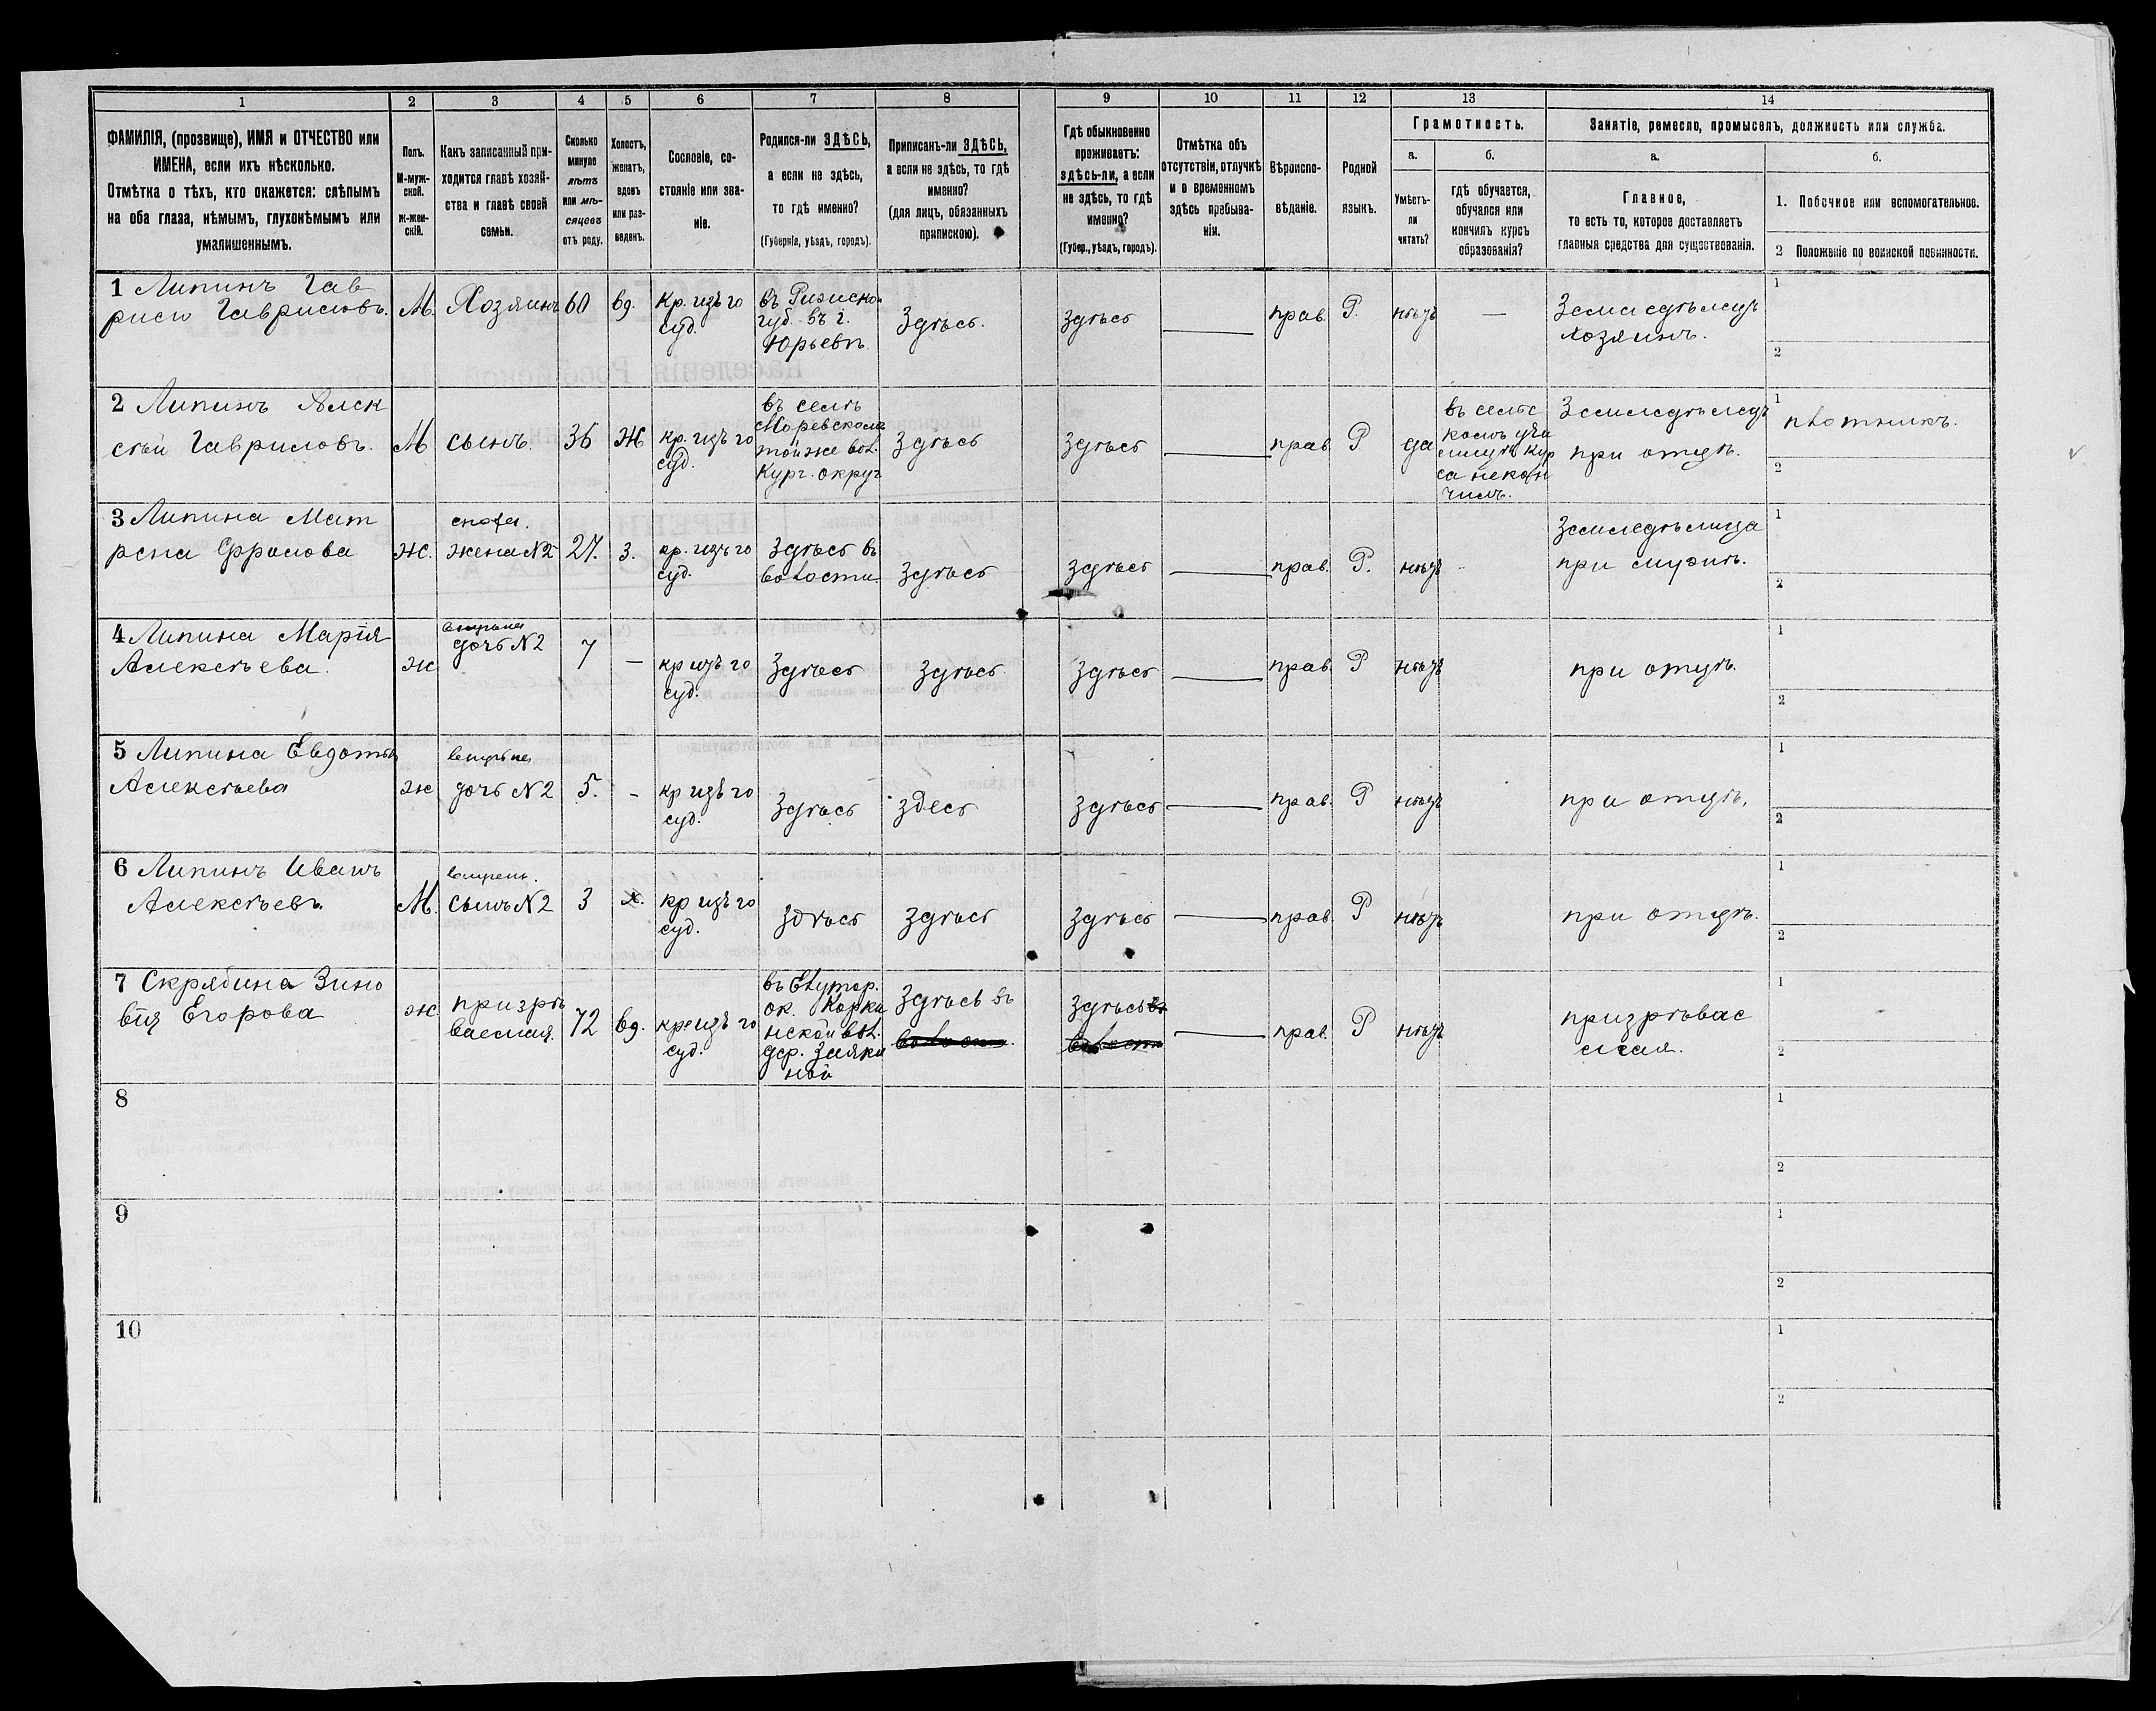 1 2 3 4 5 6 7 8 9 10 11 12 13 14
ФАМИЛІЯ, (прозвище), ИМЯ и ОТЧЕСТВО или
ИМЕНА, если ихъ нѣсколько.
Отмѣтка о тѣхъ, кто окажется: слѣпымъ
на оба глаза, нѣмымъ, глухонѣмымъ или
умалишеннымъ.
Полъ.
М-муж-
ской.
Ж-жен-
скій.
Какъ записанный при-
ходится главѣ хозяй-
ства и главѣ своей
семьи.
Сколько
минуло
лѣтъ
или мѣ-
сяцевъ
отъ роду.
Холостъ,
женатъ,
вдовъ
или раз-
веденъ.
Сословіе, со-
стояніе или зва-
ніе.
Родился-ли ЗДѢСЬ,
а если не здѣсь,
то гдѣ именно?
(Губернія, уѣздъ, городъ).
Приписанъ-ли ЗДѢСЬ,
а если не здѣсь, то гдѣ
именно?
(для лицъ, обязанныхъ
припискою).
Гдѣ обыкновенно
проживаетъ:
здѣсь-ли, а если
не здѣсь, то гдѣ
именно?
(Губер., уѣздъ, городъ).
Отмѣтка объ
отсутствіи, отлучкѣ
и о временномъ
здѣсь пребыва-
ніи.
Вѣроиспо-
вѣданіе.
Родной
языкъ.
Грамотность.
а.
Умѣетъ-
ли
читать?
б.
гдѣ обучается,
обучался или
кончилъ курсъ
образованія?
Занятіе, ремесло, промыселъ, должность или служба.
а.
Главное,
то есть то, которое доставляетъ
главныя средства для существованія.
б.
1. Побочное или вспомогательное.
2 Положеніе по воинской повинности.
1 Липинъ Гав
рило Гавриловъ.
М.
Хозяинъ
60
вд.
Кр. изъ го
суд.
въ Рижской
губ. въ г.
Юрьевъ
Здѣсь.
здѣсь
прав.
Р.
нѣтъ
—
Земледѣлецъ
хозяинъ.
1
2
2 Липинъ Алек
сѣй Гавриловъ.
М
сынъ.
36
Ж
кр. изъ го
суд.
въ селѣ
Моревском
той же вол.
Кург. округ
Здѣсь
Здѣсь
прав.
Р
да
въ сель
комъ учи
лищѣ кур
са не кон
чилъ.
Земледѣлецъ
при отцѣ.
1
плотникъ.
2
3 Липина Мат
рена Фролова
ж.
сноха.
жена N2
27.
з.
кр. изъ го
суд.
Здѣсь въ
волости
Здѣсь
здѣсь
прав.
Р.
нѣтъ
Земледѣлица
при мужѣ.
1
2
4 Липина Марія
Алексѣева.
ж
внучка
дочь N2
7
—
кр изъ го
суд.
Здѣсь
Здѣсь
Здѣсь
прав.
Р
нѣтъ
при отцѣ.
1
2
5 Липина Евдотья
Алексѣева
ж
дочь N2
5.
-
кр изъ го
суд.
Здѣсь
здесь
здѣсь
прав.
Р
нѣтъ
при отцѣ.
1
2
6 Липинъ Иванъ
Алексѣевъ.
М.
сынъ N2
3
х.
кр изъ го
суд.
здѣсь
здѣсь
здѣсь
прав.
Р
нѣтъ
при отцѣ.
1
2
7 Скрябина Зино
вія Егорова
ж.
призрѣ
ваемая.
72
вд.
кр изъ го
суд.
въ Ялутор.
ок. Корки
нской вол.
дер. Заяки
ной
Здѣсь въ
Здѣсь
прав.
Р
нѣтъ
призрѣвае
мая.
1
2
8
1
2
9
1
2
10
1
2